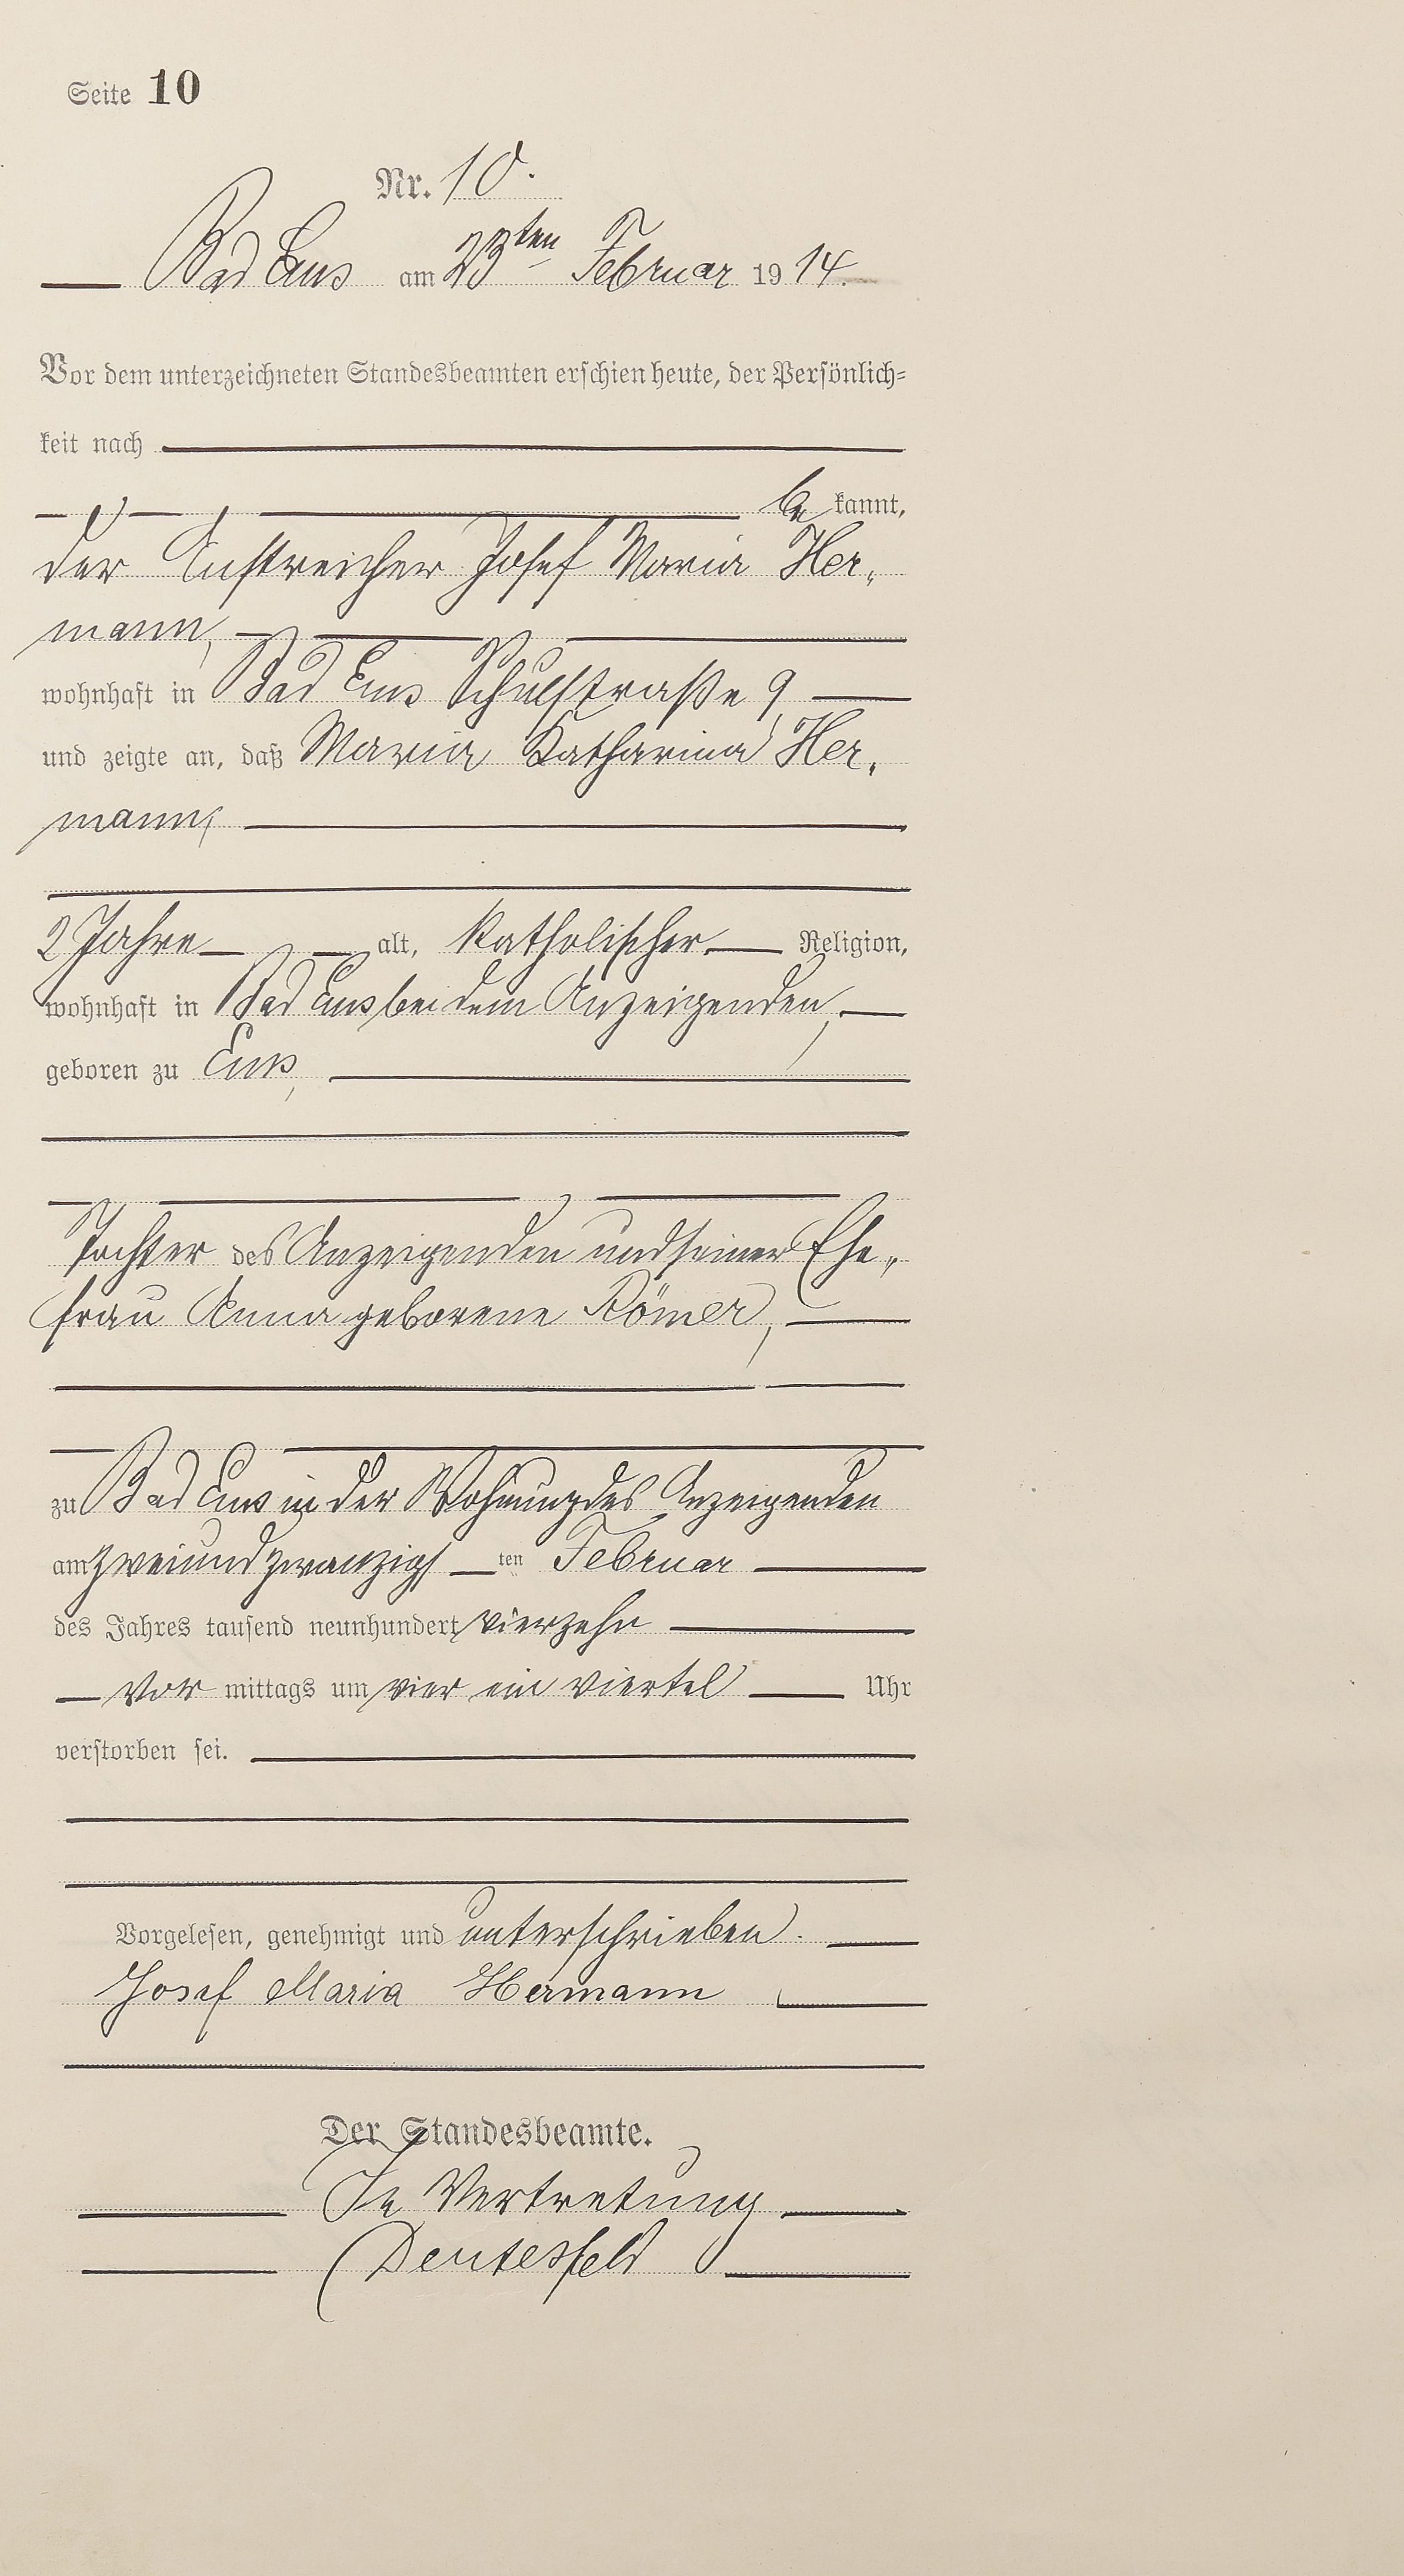 Seite 10
Nr. 10.
Bad Ems am 23ten Februar 1914.
Vor dem unterzeichneten Standesbeamten erschien heute, der Persönlich-
keit nach
bekannt,
der Anstreicher Josef Maria Her-
mann,
wohnhaft in Bad Ems Schulstraße 9
und zeigte an, daß Maria Katharina Her-
mann,
2 Jahre alt, katholischer Religion,
wohnhaft in Bad Ems bei dem Anzeigenden,
geboren zu Ems,
Tochter des Anzeigenden und seiner Ehe-
frau Anna geborene Römer,
zu Bad Ems in der Wohnung des Anzeigenden
am zweiundzwanzigsten Februar
des Jahres tausend neunhundert vierzehn
Vormittags um vier ein viertel Uhr
verstorben sei.
Vorgelesen, genehmigt und unterschrieben.
Josef Maria Hermann
Der Standesbeamte.
In Vertretung